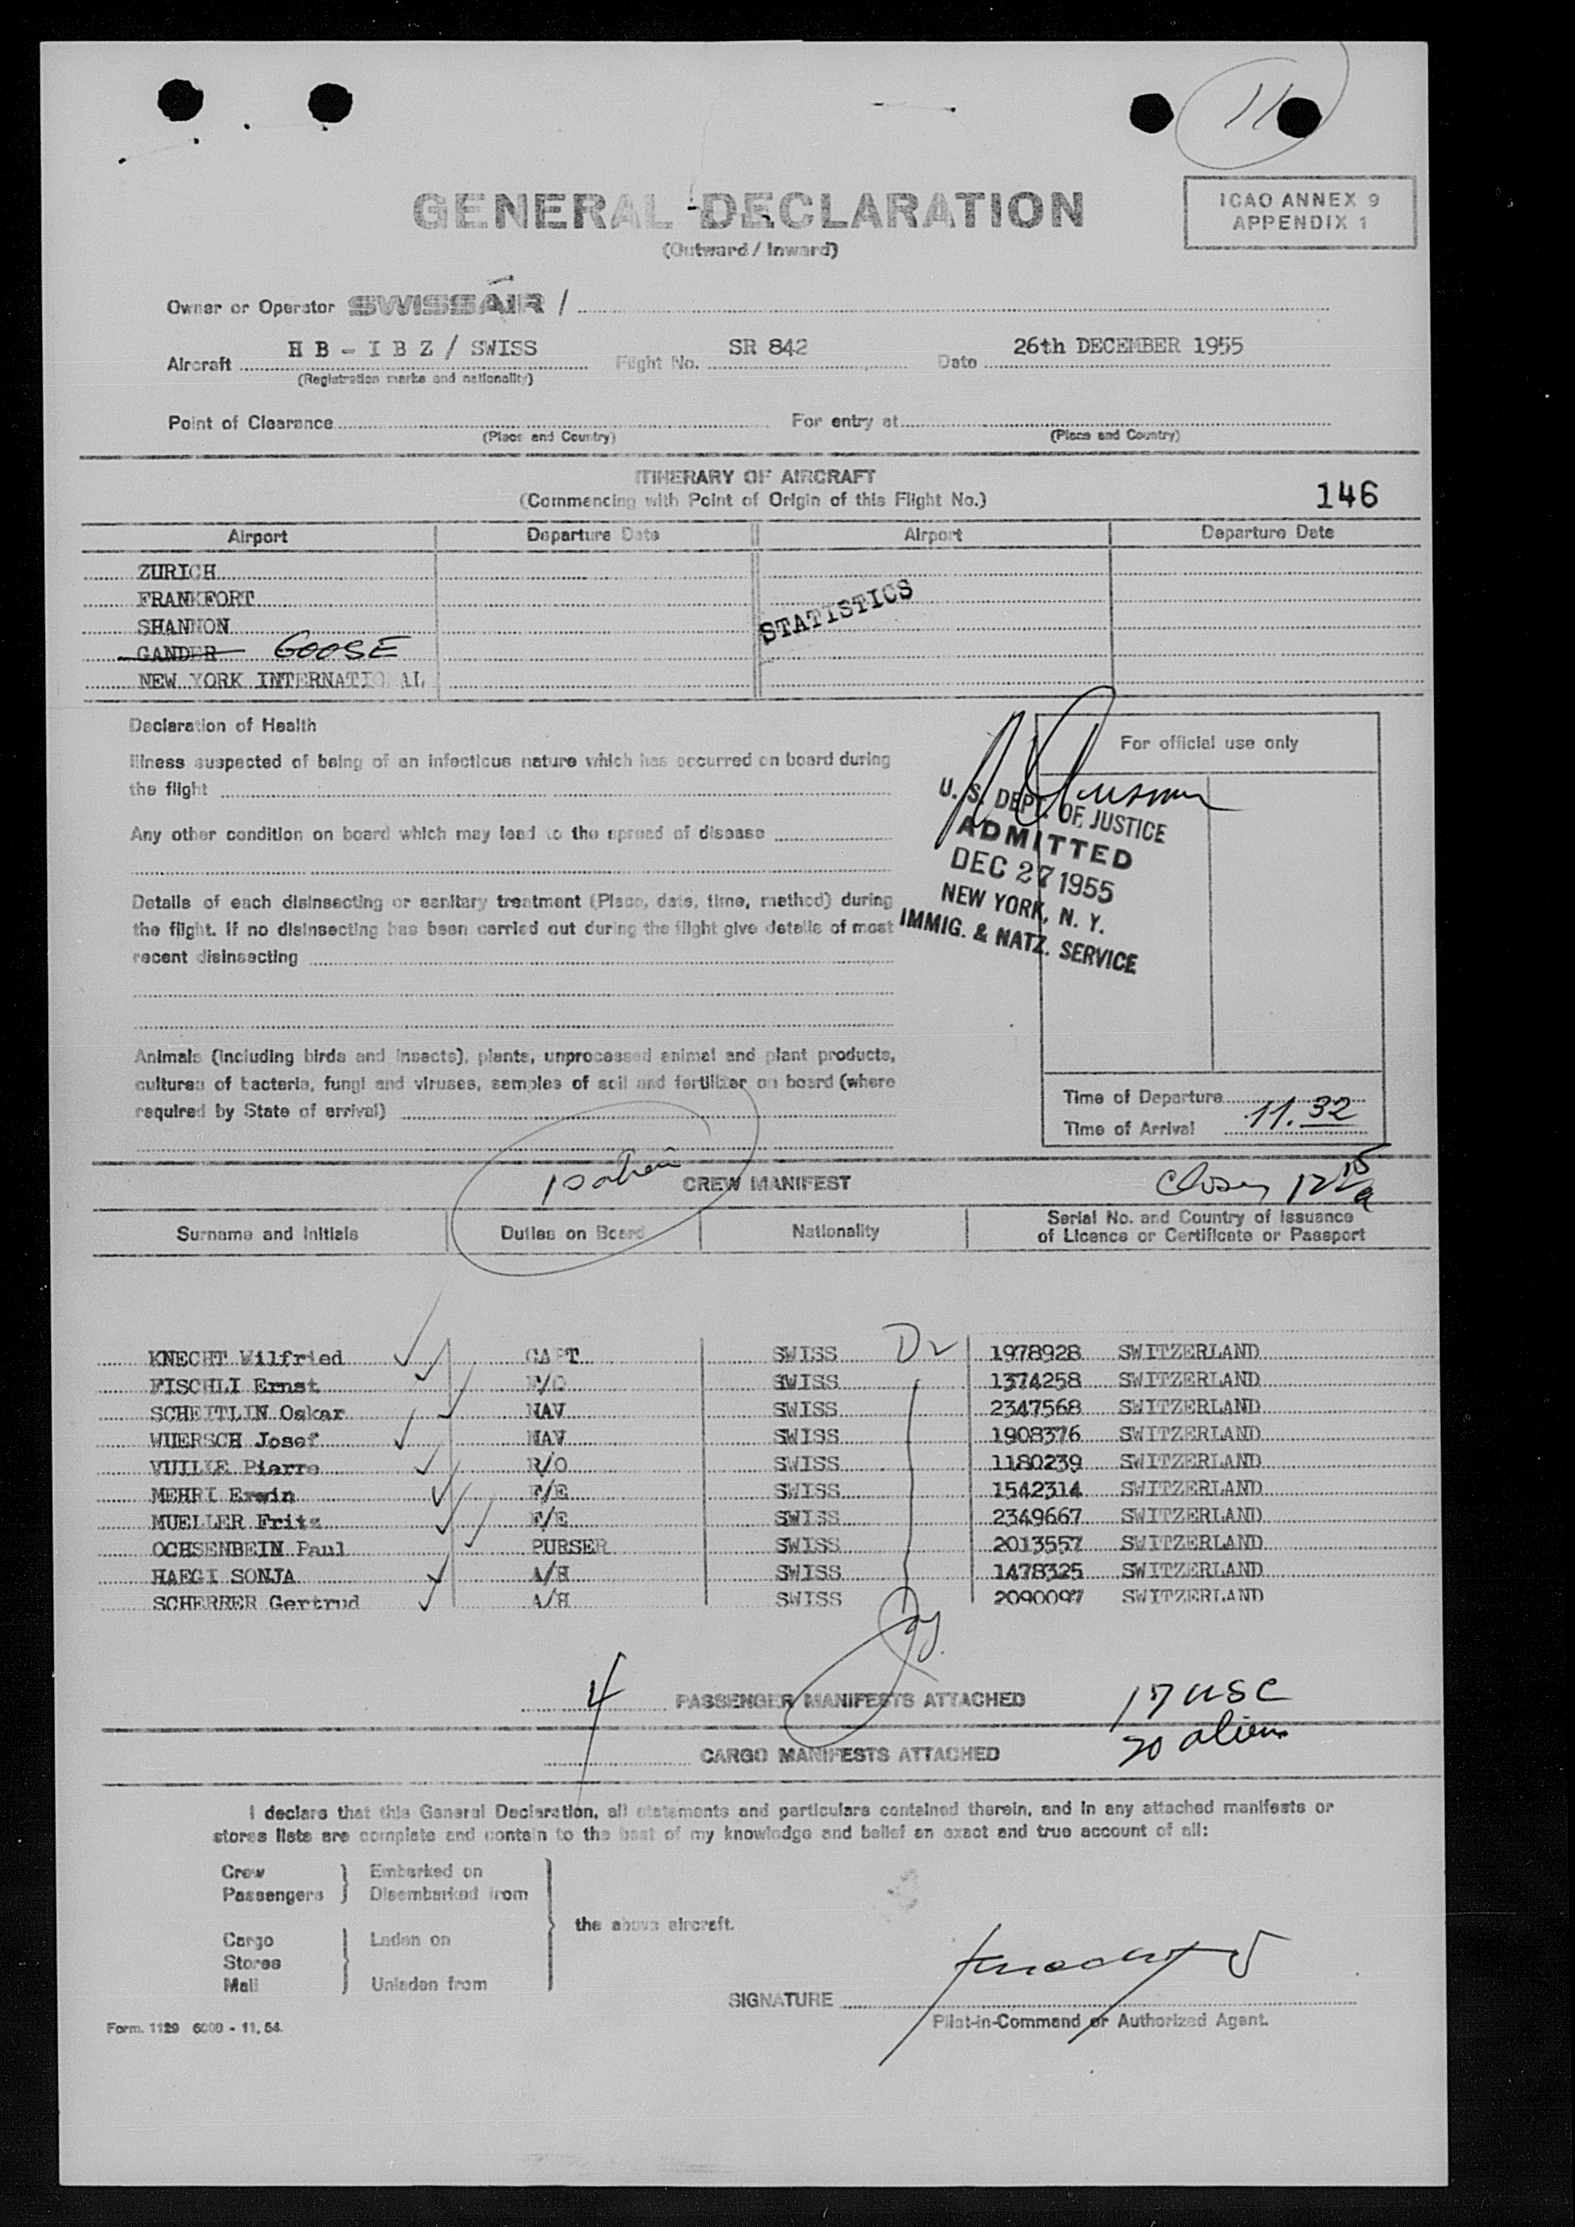 11
GENERAL DECLARATION
(Outward / Inward)
ICAO ANNEX 9
APPENDIX 1
Owner or Operator SWISSAIR /
Aircraft H B - I B Z / SWISS Flight No. SR 842 Date 26th DECEMBER 1955
(Registration marks and nationality)
Point of Clearance For entry at
(Place and Country) (Place and Country)
ITINERARY OF AIRCRAFT
(Commencing with Point of Origin of this Flight No.)
146
Airport Departure Date Airport Departure Date
ZURICH
FRANKFORT
SHANNON
GANDER GOOSE
NEW YORK INTERNATIONAL
STATISTICS
Declaration of Health
Illness suspected of being of an infectious nature which has occurred on board during
the flight
Any other condition on board which may lead to the spread of disease
Details of each disinsecting or sanitary treatment (Place, date, time, method) during
the flight. If no disinsecting has been carried out during the flight give details of most
recent disinsecting
Animals (including birds and insects), plants, unprocessed animal and plant products,
cultures of bacteria, fungi and viruses, samples of soil and fertilizer on board (where
required by State of arrival)
For official use only
U. S. DEPT. OF JUSTICE
ADMITTED
DEC 27 1955
NEW YORK, N. Y.
IMMIG. & NATZ. SERVICE
Time of Departure
Time of Arrival 11.32
CREW MANIFEST
Surname and Initials Duties on Board Nationality Serial No. and Country of Issuance
of Licence or Certificate or Passport
KNECHT Wilfried CAPT SWISS 1978928 SWITZERLAND
FISCHLI Ernst F/O SWISS 1374258 SWITZERLAND
SCHEITLIN Oskar NAV SWISS 2347568 SWITZERLAND
WUERSCH Josef NAV SWISS 1908376 SWITZERLAND
VUILLE Pierre R/O SWISS 1180239 SWITZERLAND
MEHRI Erwin F/E SWISS 1542314 SWITZERLAND
MUELLER Fritz F/E SWISS 2349667 SWITZERLAND
OCHSENBEIN Paul PURSER SWISS 2013557 SWITZERLAND
HAEGI SONJA A/H SWISS 1478325 SWITZERLAND
SCHERRER Gertrud A/H SWISS 2090097 SWITZERLAND
4 PASSENGER MANIFESTS ATTACHED 17 USC
CARGO MANIFESTS ATTACHED 20 aliens
I declare that this General Declaration, all statements and particulars contained therein, and in any attached manifests or
stores lists are complete and contain to the best of my knowledge and belief an exact and true account of all:
Crew Embarked on
Passengers Disembarked from
the above aircraft.
Cargo Laden on
Stores
Mail Unladen from
SIGNATURE
Pilot-in-Command or Authorized Agent.
Form. 1129 6000 - 11, 54.